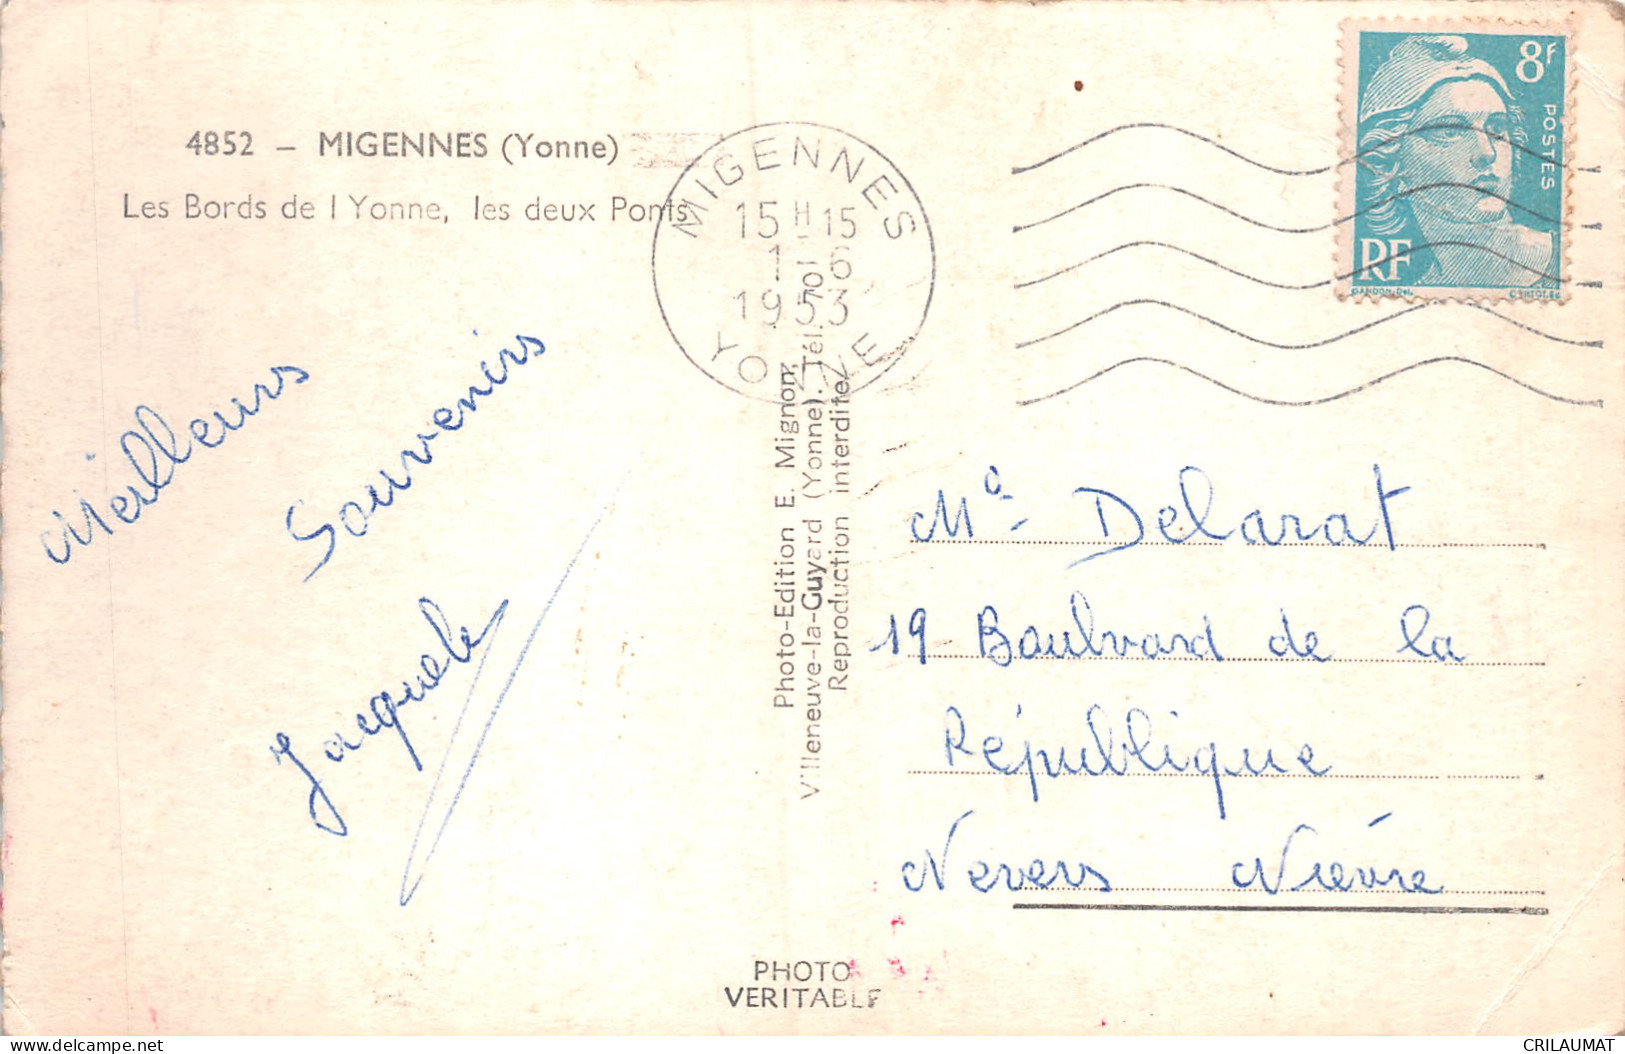 4852 – MIGENNES (Yonne)
Les Bords de l Yonne, les deux Ponts
MIGENNES
15 H 15
1 6
1953
YONNE
8F
POSTES
RF
GANDON.Del.
Meilleurs
Souvenirs
Photo-Edition E. Mignon,
Villeneuve-la-Guyard (Yonne). Tél. 70
Reproduction interdite
Delarat
19 Boulvard de la
République
Nevers Nièvre
PHOTO
VERITABLE
delcampe.net
CRILAUMAT